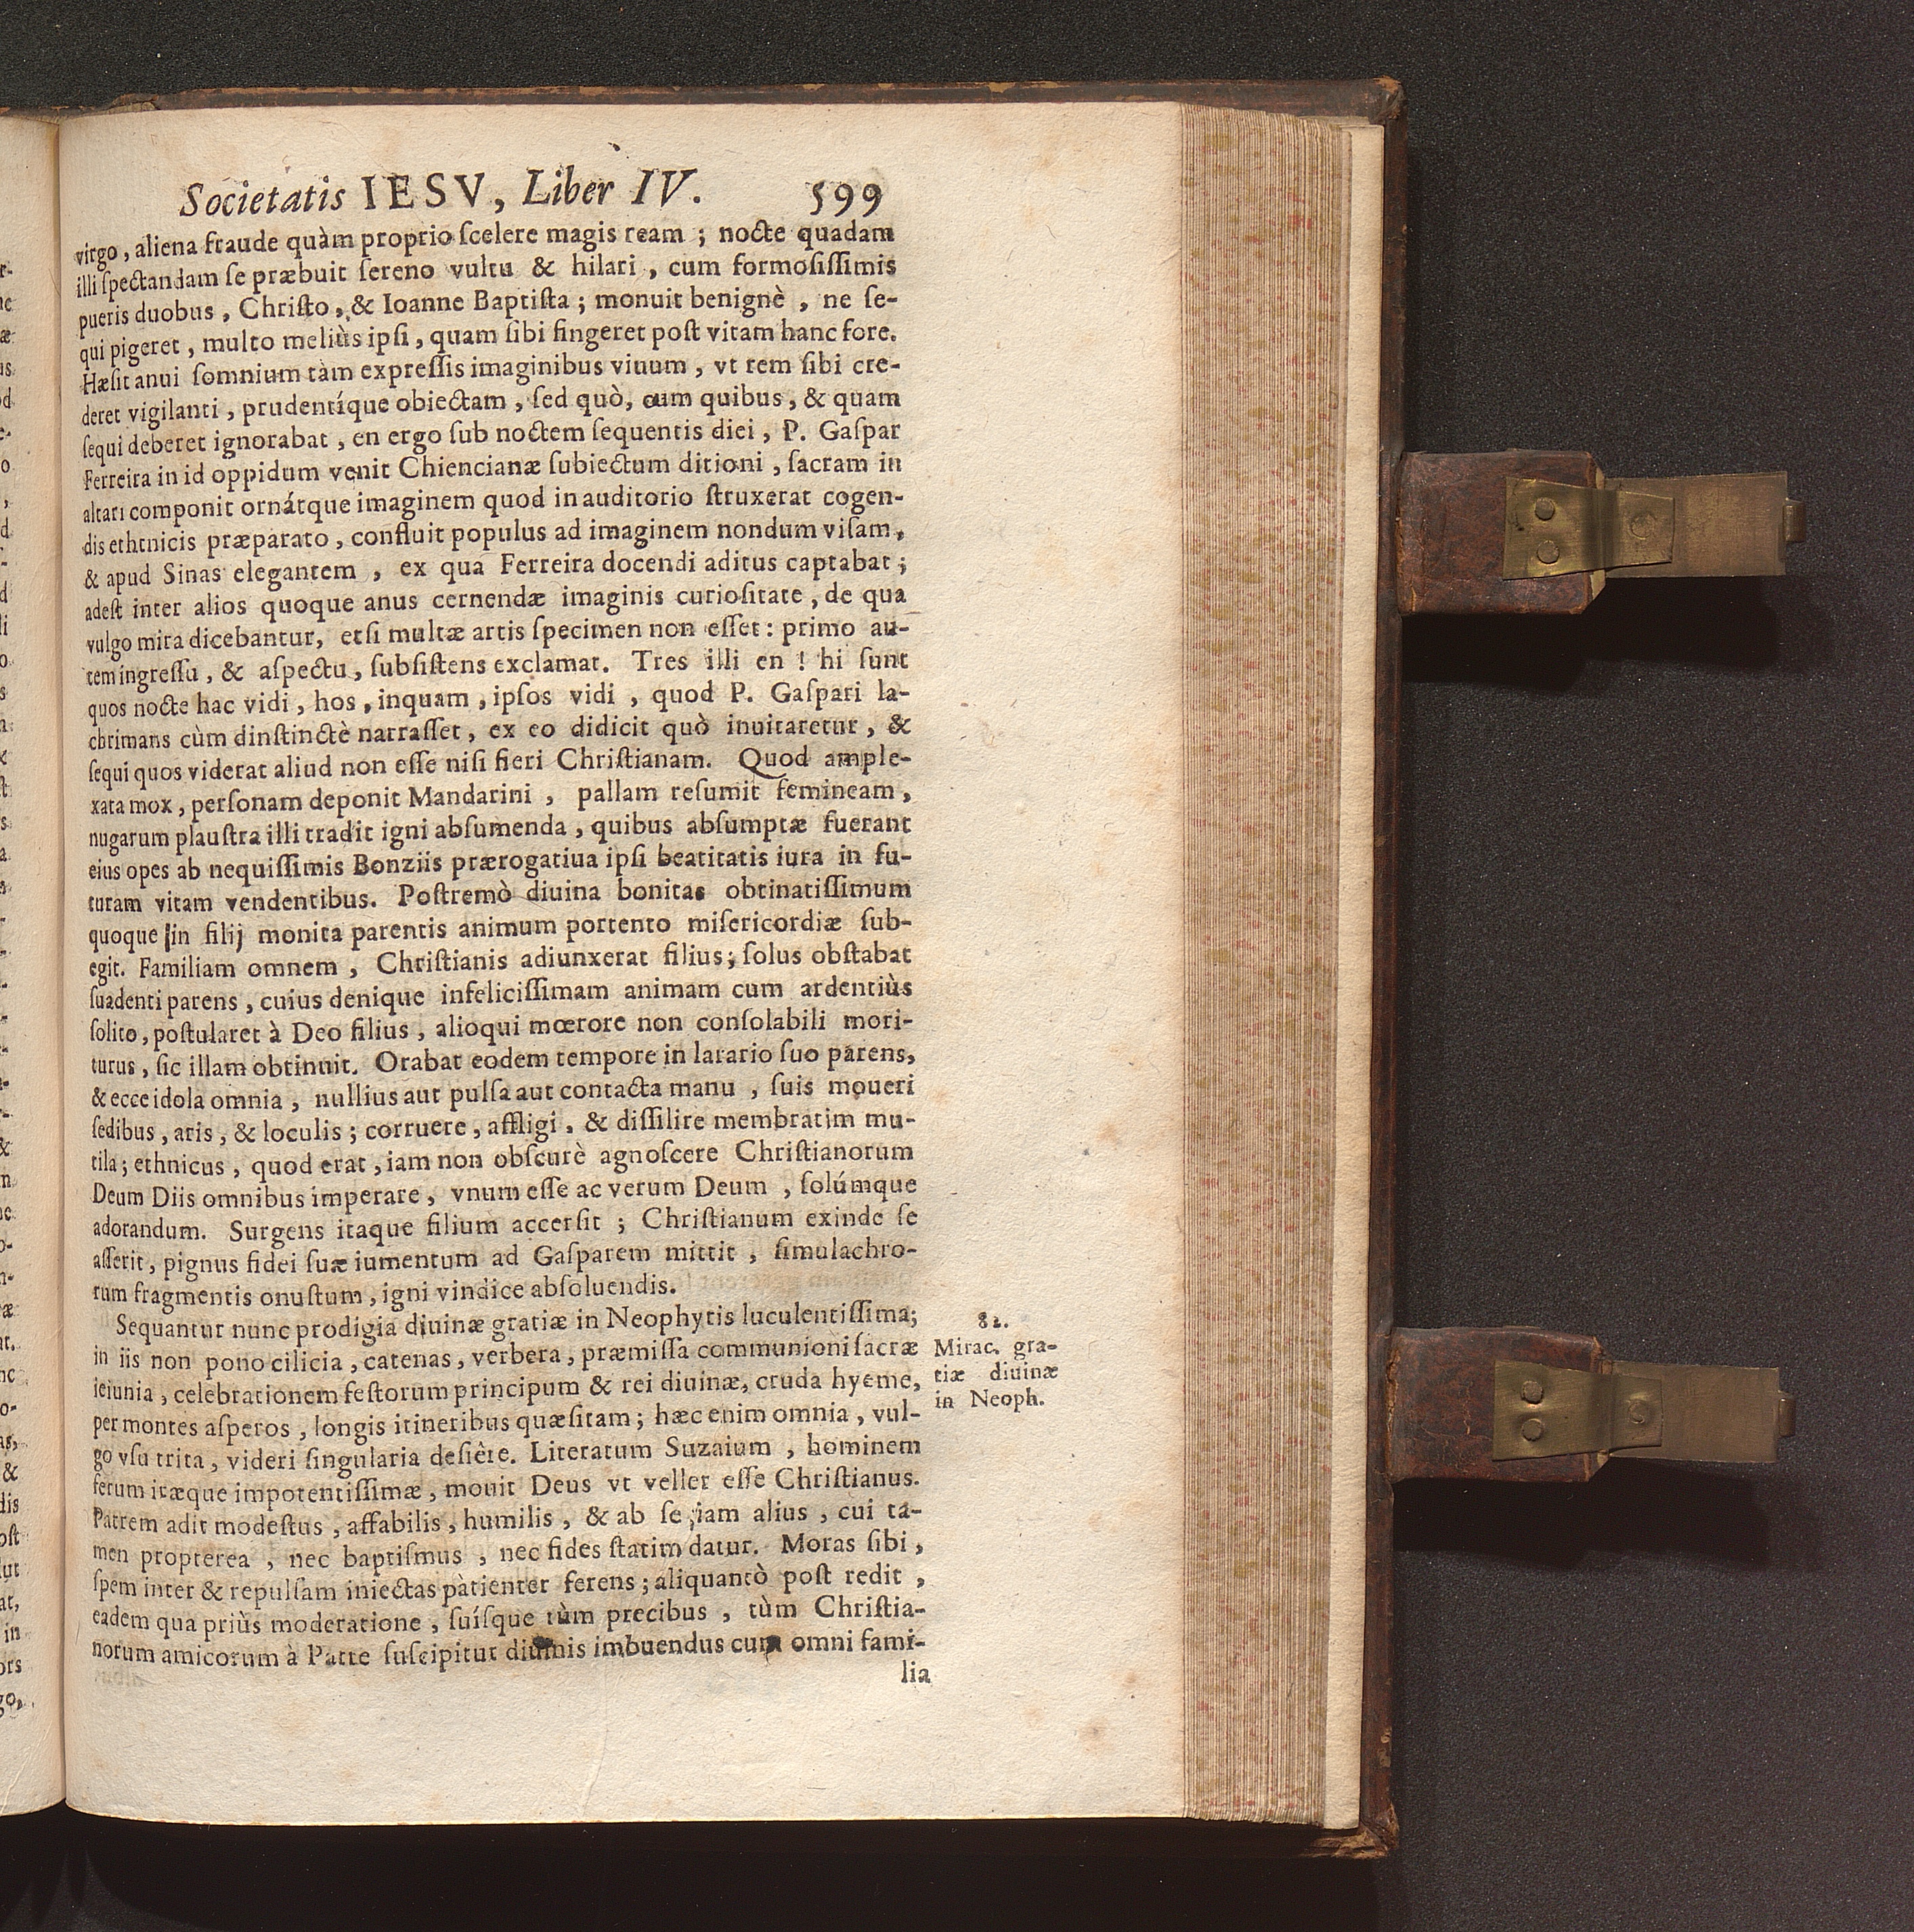 Societatis IESV, Liber IV. 599
virgo, aliena fraude quàm proprio ſcelere magis ream ; nocte quadam
illi ſpectandam ſe præbuit ſereno vultu & hilari , cum formoſiſſimis
pueris duobus , Chriſto , & Ioanne Baptiſta ; monuit benignè , ne ſe-
qui pigeret , multo meliùs ipſi , quam ſibi fingeret poſt vitam hanc fore.
Hæſit anui ſomnium tàm expreſſis imaginibus viuum , vt rem ſibi cre-
deret vigilanti , prudentíque obiectam , ſed quò, cum quibus , & quam
ſequi deberet ignorabat , en ergo ſub noctem ſequentis diei , P. Gaſpar
Ferreira in id oppidum venit Chiencianæ ſubiectum ditioni , ſacram in
altari componit ornátque imaginem quod in auditorio ſtruxerat cogen-
dis ethtnicis præparato , confluit populus ad imaginem nondum viſam ,
& apud Sinas elegantem , ex qua Ferreira docendi aditus captabat ;
adeſt inter alios quoque anus cernendæ imaginis curioſitate , de qua
vulgo mira dicebantur, etſi multæ artis ſpecimen non eſſet : primo au-
tem ingreſſu , & aſpectu , ſubſiſtens exclamat. Tres illi en ! hi ſunt
quos nocte hac vidi , hos , inquam , ipſos vidi , quod P. Gaſpari la-
chrimans cùm dinſtinctè narraſſet , ex eo didicit quò inuitaretur , &
ſequi quos viderat aliud non eſſe niſi fieri Chriſtianam. Quod ample-
xata mox , perſonam deponit Mandarini , pallam reſumit femineam ,
nugarum plauſtra illi tradit igni abſumenda , quibus abſumptæ fuerant
eius opes ab nequiſſimis Bonziis prærogatiua ipſi beatitatis iura in fu-
turam vitam vendentibus. Poſtremò diuina bonitas obtinatiſſimum
quoque in filij monita parentis animum portento miſericordiæ ſub-
egit. Familiam omnem , Chriſtianis adiunxerat filius ; ſolus obſtabat
ſuadenti parens , cuius denique infeliciſſimam animam cum ardentiùs
ſolito , poſtularet à Deo filius , alioqui mœrore non conſolabili mori-
turus , ſic illam obtinuit. Orabat eodem tempore in larario ſuo parens,
& ecce idola omnia , nullius aut pulſa aut contacta manu , ſuis moueri
ſedibus , aris , & loculis ; corruere , affligi , & diſſilire membratim mu-
tila ; ethnicus , quod erat , iam non obſcurè agnoſcere Chriſtianorum
Deum Diis omnibus imperare , vnum eſſe ac verum Deum , ſolúmque
adorandum. Surgens itaque filium accerſit ; Chriſtianum exinde ſe
aſſerit , pignus fidei ſuæ iumentum ad Gaſparem mittit , ſimulachro-
rum fragmentis onuſtum , igni vindice abſoluendis.
Sequantur nunc prodigia diuinæ gratiæ in Neophytis luculentiſſima;
in iis non pono cilicia , catenas , verbera , præmiſſa communioni ſacræ
ieiunia , celebrationem feſtorum principum & rei diuinæ, cruda hyeme,
per montes aſperos , longis itineribus quæſitam ; hæc enim omnia , vul-
go vſu trita , videri ſingularia deſiêre. Literatum Suzaium , hominem
ferum iræque impotentiſſimæ , mouit Deus vt veller eſſe Chriſtianus.
Patrem adit modeſtus , affabilis , humilis , & ab ſe iam alius , cui ta-
men propterea , nec baptiſmus , nec fides ſtatim datur. Moras ſibi ,
ſpem inter & repulſam iniectas pàtienter ferens ; aliquantò poſt redit ,
eadem qua priùs moderatione , ſuíſque tùm precibus , tùm Chriſtia-
norum amicorum à Patre ſuſcipitur diuinis imbuendus cum omni fami-
lia
82.
Mirac. gra-
tiæ diuinæ
in Neoph.